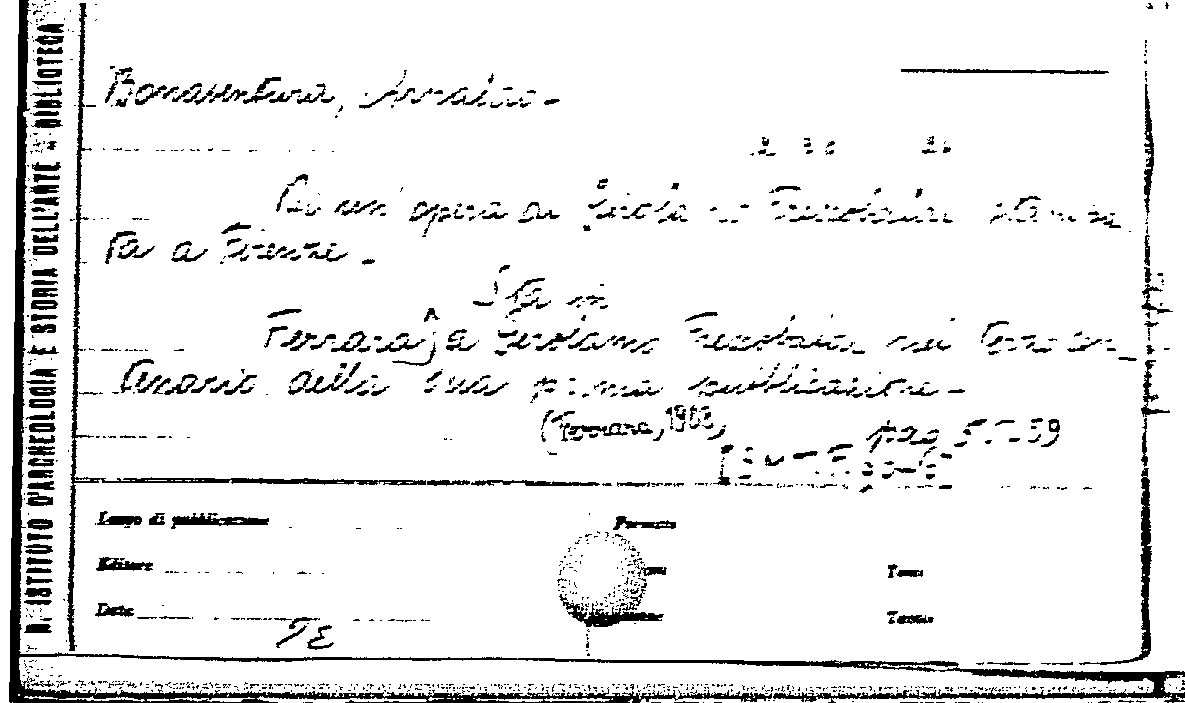 R. ISTITUTO D'ARCHEOLOGIA E STORIA DELL'ARTE - BIBLIOTECA
Bonaventura, Arnaldo -
Di un'opera di Girolamo Frescobaldi stampa
ta a Firenze -
Sta in
Ferrara a Girolamo Frescobaldi nel terzo cen_
tenario della sua prima pubblicazione -
(Ferrara, 1908,
pag
Luogo di pubblicazione
Formato
Editore
Tomi
Data
Tavole
TE